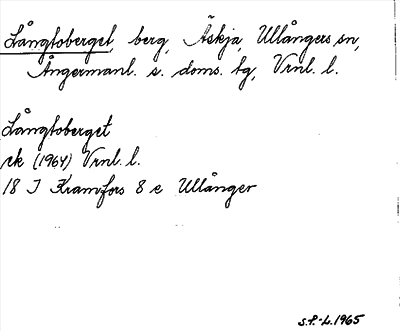 Långtoberget, berg, Äskja, Ullångers sn,
Ångermanl. s. doms. tg, Vrnl. l.
Långtoberget
ek (1964) Vrnl. l.
18 J Kramfors 8 e Ullånger
S.P.-L.1965